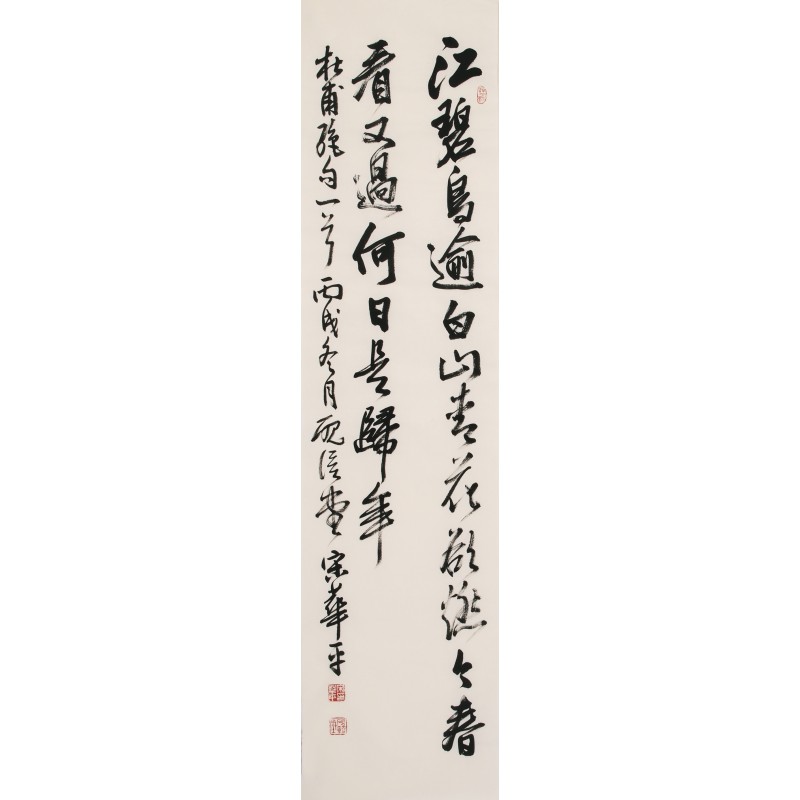 江碧鳥逾白山青花欲燃今春
看又過何日是歸年
杜甫絕句一首 丙戌冬月 硯信堂 宋華平